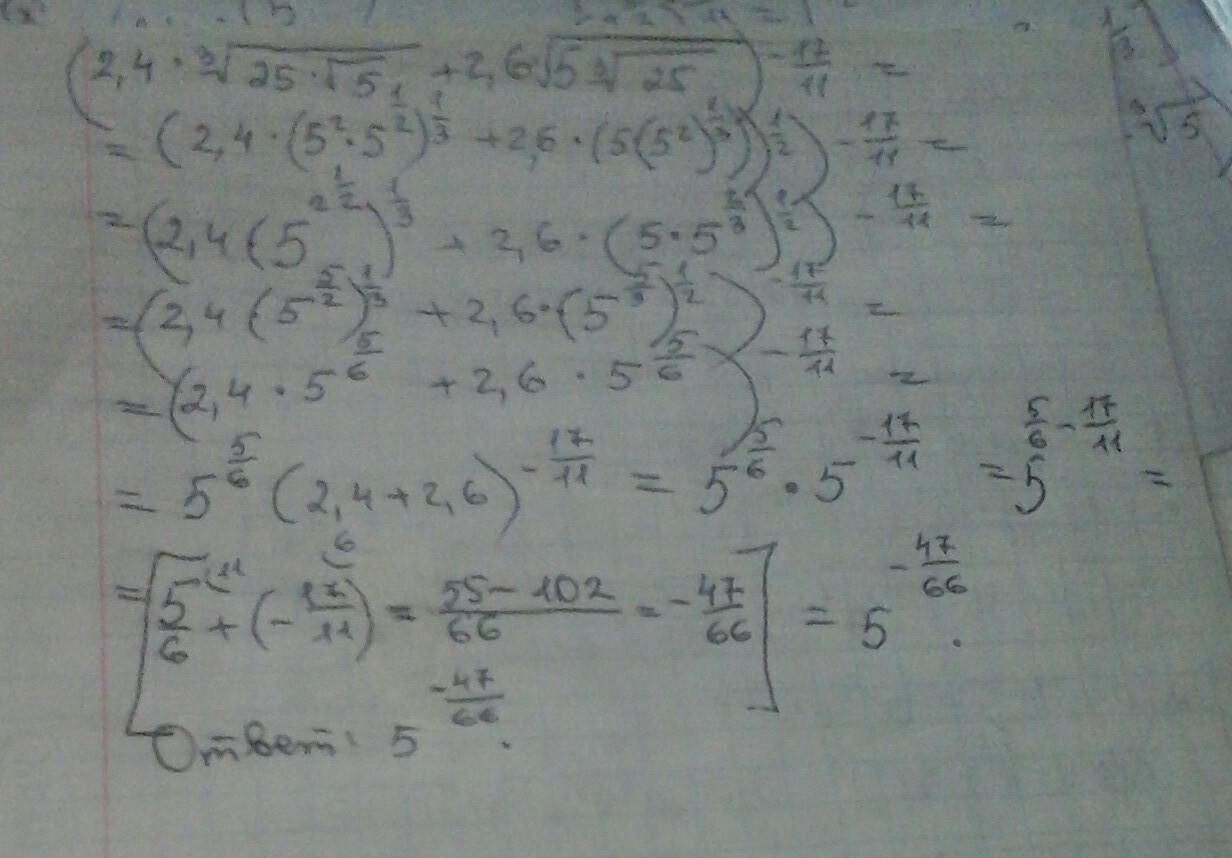 (2,4 · ∛(25·√5) + 2,6·√(5 ∛25))^(-17/11) =
= (2,4 · (5² · 5^(1/2))^(1/3) + 2,6 · (5(5²)^(1/3))^(1/2))^(-17/11) =
= (2,4 (5^(2 1/2))^(1/3) + 2,6 · (5 · 5^(2/3))^(1/2))^(-17/11) =
= (2,4 (5^(5/2))^(1/3) + 2,6 · (5^(5/3))^(1/2))^(-17/11) =
= (2,4 · 5^(5/6) + 2,6 · 5^(5/6))^(-17/11) =
= 5^(5/6) (2,4 + 2,6)^(-17/11) = 5^(5/6) · 5^(-17/11) = 5^(5/6 - 17/11) =
= [5/6 (11 + (-17/11) (6 = (55 - 102)/66 = -47/66] = 5^(-47/66) .
Ответ: 5^(-47/66) .
1/3
∛5